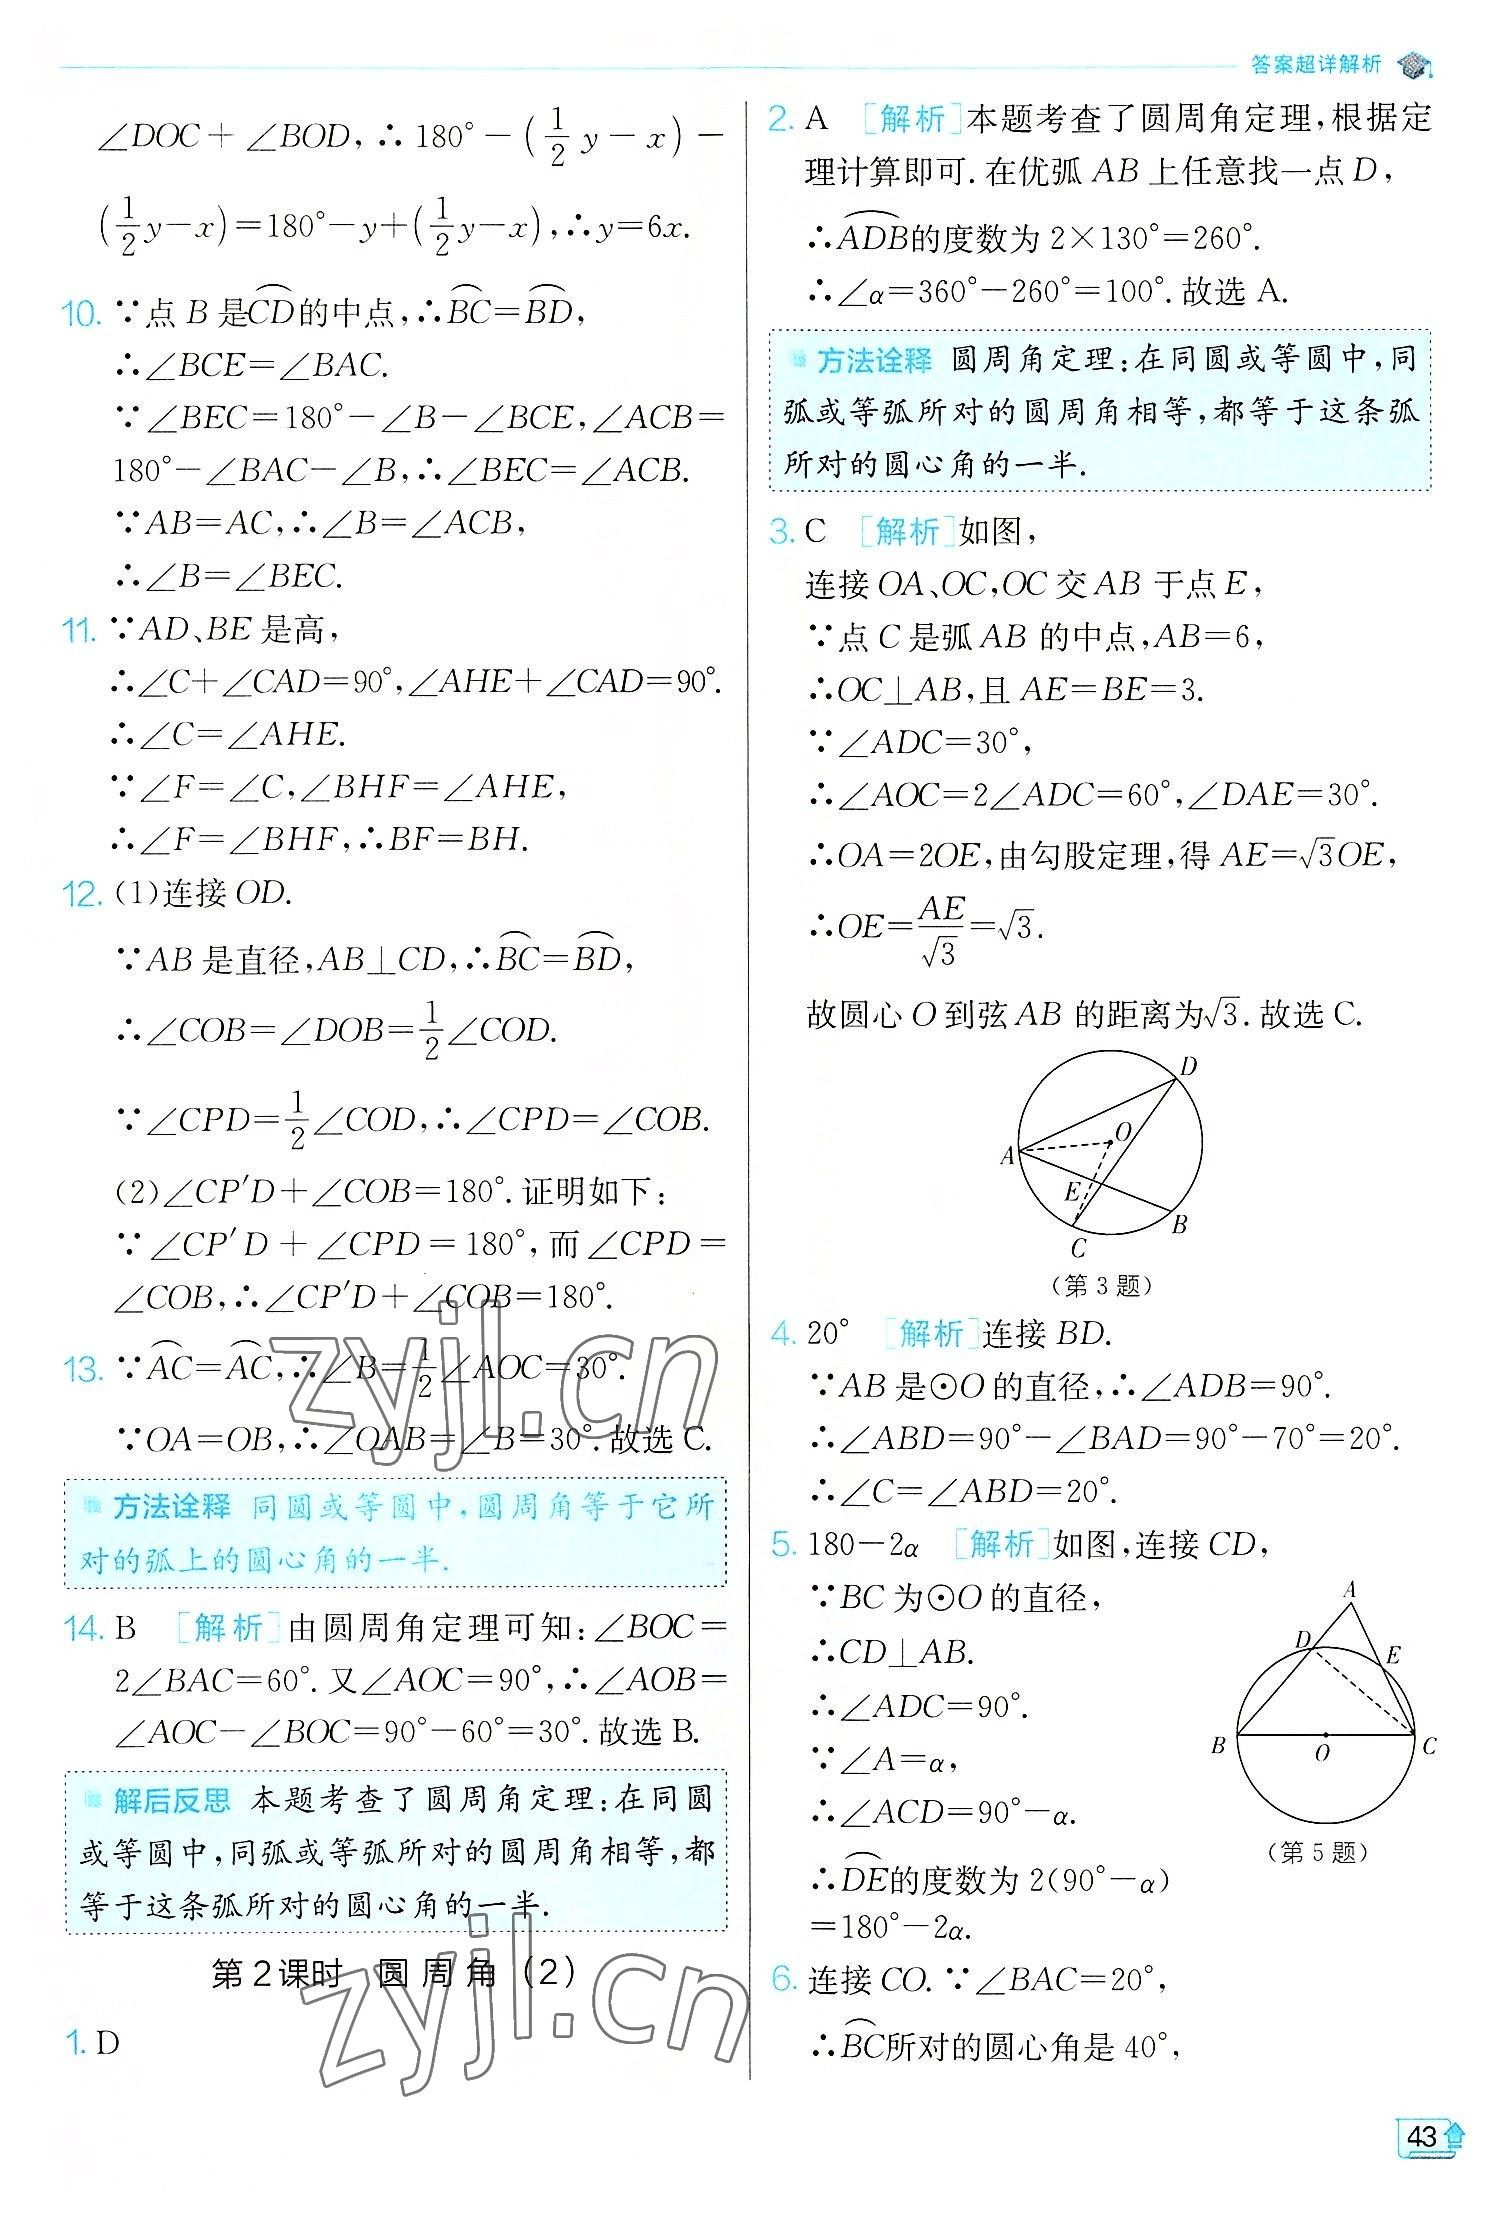 答案超详解析
∠DOC+∠BOD,∴180°-(1/2 y-x)-
(1/2 y-x)=180°-y+(1/2 y-x),∴y=6x.
10. ∵点B是⌒CD的中点,∴⌒BC=⌒BD,
∴∠BCE=∠BAC.
∵∠BEC=180°-∠B-∠BCE,∠ACB=
180°-∠BAC-∠B,∴∠BEC=∠ACB.
∵AB=AC,∴∠B=∠ACB,
∴∠B=∠BEC.
11. ∵AD、BE是高,
∴∠C+∠CAD=90°,∠AHE+∠CAD=90°.
∴∠C=∠AHE.
∵∠F=∠C,∠BHF=∠AHE,
∴∠F=∠BHF,∴BF=BH.
12. (1)连接OD.
∵AB是直径,AB⊥CD,∴⌒BC=⌒BD,
∴∠COB=∠DOB=1/2∠COD.
∵∠CPD=1/2∠COD,∴∠CPD=∠COB.
(2)∠CP′D+∠COB=180°.证明如下:
∵∠CP′D+∠CPD=180°,而∠CPD=
∠COB,∴∠CP′D+∠COB=180°.
13. ∵⌒AC=⌒AC,∴∠B=1/2∠AOC=30°.
∵OA=OB,∴∠OAB=∠B=30°.故选C.
方法诠释 同圆或等圆中,圆周角等于它所
对的弧上的圆心角的一半.
14. B [解析]由圆周角定理可知:∠BOC=
2∠BAC=60°.又∠AOC=90°,∴∠AOB=
∠AOC-∠BOC=90°-60°=30°.故选B.
解后反思 本题考查了圆周角定理:在同圆
或等圆中,同弧或等弧所对的圆周角相等,都
等于这条弧所对的圆心角的一半.
第2课时 圆周角(2)
1. D
2. A [解析]本题考查了圆周角定理,根据定
理计算即可.在优弧AB上任意找一点D,
∴⌒ADB的度数为2×130°=260°.
∴∠α=360°-260°=100°.故选A.
方法诠释 圆周角定理:在同圆或等圆中,同
弧或等弧所对的圆周角相等,都等于这条弧
所对的圆心角的一半.
3. C [解析]如图,
连接OA、OC,OC交AB于点E,
∵点C是弧AB的中点,AB=6,
∴OC⊥AB,且AE=BE=3.
∵∠ADC=30°,
∴∠AOC=2∠ADC=60°,∠DAE=30°.
∴OA=2OE,由勾股定理,得AE=√3OE,
∴OE=AE/√3=√3.
故圆心O到弦AB的距离为√3.故选C.
D
O
A
E
B
C
(第3题)
4. 20° [解析]连接BD.
∵AB是⊙O的直径,∴∠ADB=90°.
∴∠ABD=90°-∠BAD=90°-70°=20°.
∴∠C=∠ABD=20°.
5. 180-2α [解析]如图,连接CD,
∵BC为⊙O的直径,
∴CD⊥AB.
∴∠ADC=90°.
∵∠A=α,
∴∠ACD=90°-α.
∴⌒DE的度数为2(90°-α)
=180°-2α.
A
D
E
B
O
C
(第5题)
6. 连接CO.∵∠BAC=20°,
∴⌒BC所对的圆心角是40°,
zyjl.cn
zyjl.cn
43